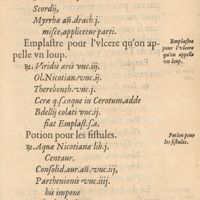 Scordij,
Myrrhæ añ.drach.j.
misce,applicetur parti.
Emplastre pour l'vlcere qu'on ap
pelle vn loup.
Emplastre
pour l'vlcere
qu'on appelle
vn loup.
℞. Viridis æris vnc.iij.
Ol.Nicotian.vnc.ij.
Therebenth.vnc.j.
Ceræ q.s.coque in Cerotum,adde
Bdellij colati vnc.ij.
fiat Emplast.s.a.
Potion pour les fistules.
Potion pour
les fistules.
℞.Aquæ Nicotianæ lib.j.
Centaur.
Consolid.aur.añ.vnc.iij,
Parthenionis vnc.iiij.
his impone